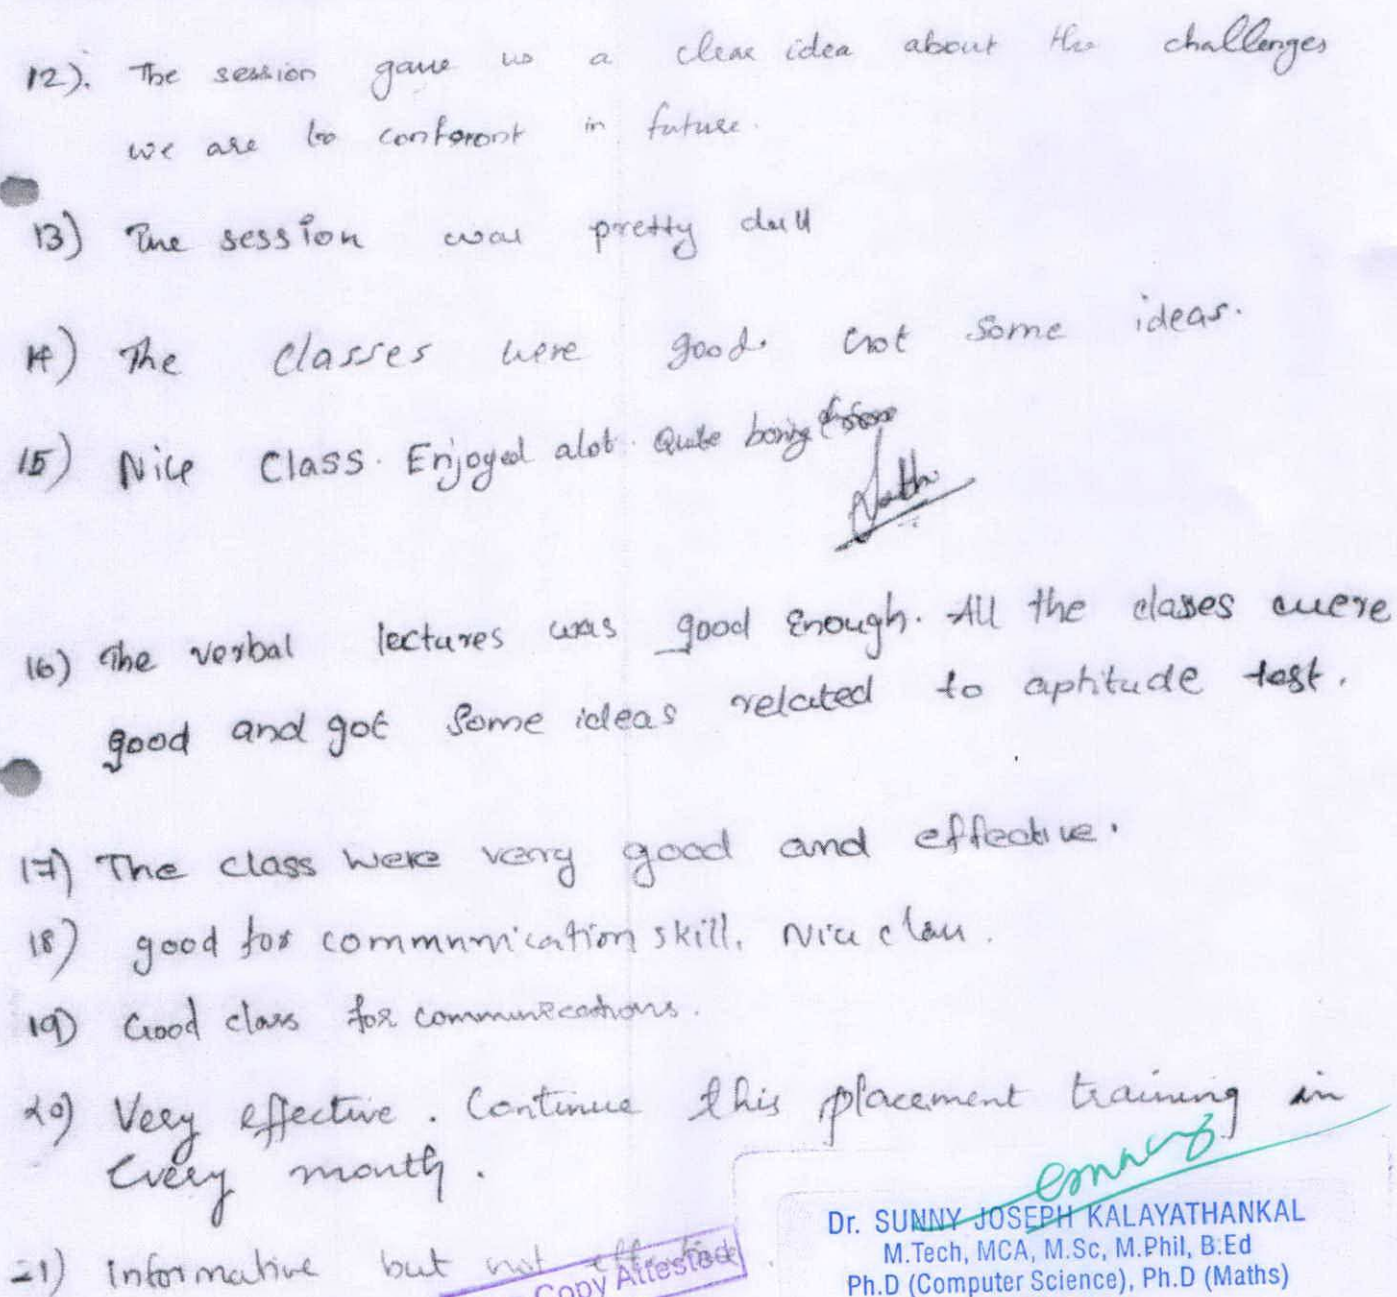 12). The session gave us a clear idea about the challenges
we are to conforont in future.
13) The session was pretty dull
14) The classes were good. Got some ideas.
15) Nice Class. Enjoyed alot. Quite boring
16) The verbal lectures was good enough. All the clases were
good and got some ideas related to aptitude test.
17) The class were very good and effective.
18) good for communication skill. Nice class.
19) Good class for communications.
20) Very effective. Continue this placement training in
Every month.
Dr. SUNNY JOSEPH KALAYATHANKAL
M.Tech, MCA, M.Sc, M.Phil, B.Ed
21) Informative but not effective
Copy Attested
Ph.D (Computer Science), Ph.D (Maths)